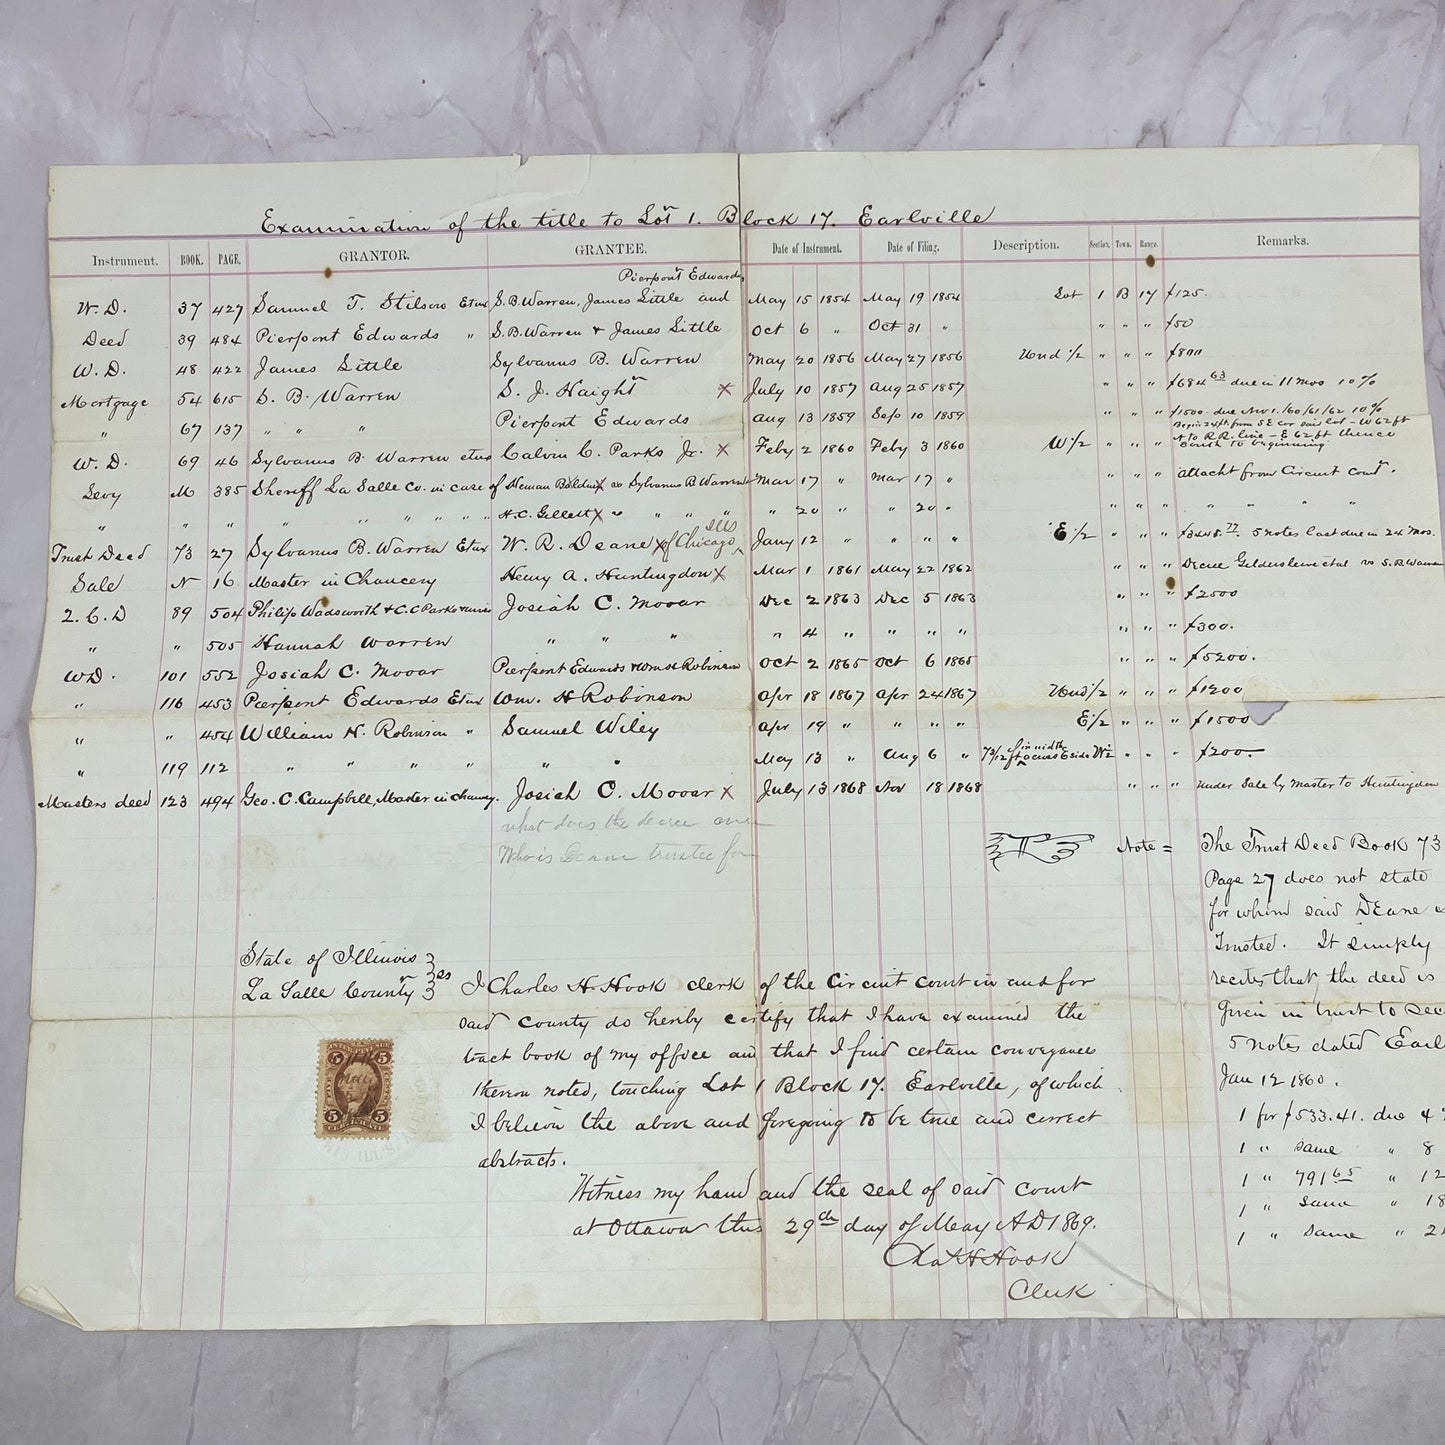 Examination of the title to Lot 1. Block 17. Earlville
Instrument. BOOK. PAGE. GRANTOR. GRANTEE. Date of Instrument. Date of Filing. Description. Section. Town. Range. Remarks.
Pierpont Edwards,
W. D. 37 427 Samuel T. Stilson Etux S. B. Warren, James Little and May 15 1854 May 19 1854 Lot 1 B 17 $125.
Deed 39 484 Pierpont Edwards " S. B. Warren & James Little Oct 6 " Oct 31 " " " " $50
W. D. 48 422 James Little Sylvanus B. Warren May 20 1856 May 27 1856 Und 1/2 " " " $800
Mortgage 54 615 S. B. Warren S. J. Haight X July 10 1857 Aug 25 1857 " " " $684 63 due in 11 mos 10%
" 67 137 " " " Pierpont Edwards Aug 13 1859 Sep 10 1859 " " " $1500 due Nov 1. /60/61/62 10%
Begin 24ft from S E cor said lot - W 62 ft
W. D. 69 46 Sylvanus B. Warren etux Calvin C. Parks Jr. X Feby 2 1860 Feby 3 1860 W 1/2 " " " N to R.R. line - E 62 ft thence South to beginning
Levy M 385 Sheriff La Salle Co. in case of Heman Baldwin X vs Sylvanus B Warren Mar 17 " Mar 17 " " " " attacht from Circuit court.
" " " " " " " " H. C. Gillett X " " " " " 20 " " 20 " " " " " " "
Ills
Trust Deed 73 27 Sylvanus B. Warren Etux W. R. Deane X of Chicago Jany 12 " " " " E 1/2 " " " $3448.77. 5 notes last due in 24 mos.
Sale N 16 Master in Chancery Henry A. Huntingdon X Mar 1 1861 May 22 1862 " " " Decree Gildersleeve et al vs S. B. Warren
2. C. D 89 504 Philip Wadsworth & C. C Parks Josiah C. Mooar Dec 2 1863 Dec 5 1863 " " " $2500
" " 505 Hannah Warren " " " " 4 " " " " " " " $300.
WD. 101 552 Josiah C. Mooar Pierpont Edwards & Wm H Robinson Oct 2 1865 Oct 6 1865 " " " $5200.
" 116 453 Pierpont Edwards Etux Wm. H Robinson Apr 18 1867 Apr 24 1867 Und 1/2 " " " $1200
" " 454 William H. Robinson " Samuel Wiley Apr 19 " " " " E 1/2 " " " $1500
" 119 112 " " " " " " May 13 " Aug 6 " 7 3/12 ft in width across E side W 1/2 " " " $200.
Masters deed 123 494 Geo. C. Campbell, Master in chancy. Josiah C. Mooar X July 13 1868 Nov 18 1868 " " " under Sale by Master to Huntingdon
what does the decree
Who is Deane trustee for
Note = The Trust Deed Book 73
Page 27 does not state
for whom said Deane
Trustee. It simply
recites that, the deed is
Given in trust to sec
5 notes dated Earl
Jan 12 1860.
1 for $533.41. due 4
1 " same " 8
1 " 791 65 " 12
1 " same " 18
1 " same " 2
State of Illinois
La Salle County } ss I Charles H. Hook clerk of the Circuit court in and for
said county do hereby certify that I have examined the
tract book of my office and that I find certain conveyances
thereon noted, touching Lot 1 Block 17. Earlville, of which
I believe the above and foregoing to be true and correct
abstracts.
Witness my hand and the seal of said court
at Ottawa this 29th day of May A D 1869.
Chas H Hook
Clerk
5 5
5 5